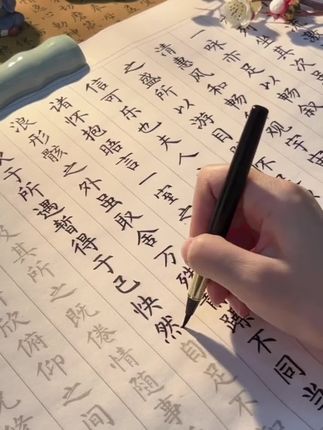 坐其次虽
一咏亦足以畅叙
清惠风和畅仰观宇宙
之盛所以游目骋怀
信可乐也夫人
诸怀抱晤言一室之
浪形骸之外虽取舍万殊静躁不同当
于所遇暂得于己快然自足不
及其所之既倦情随事
欣俯仰之间